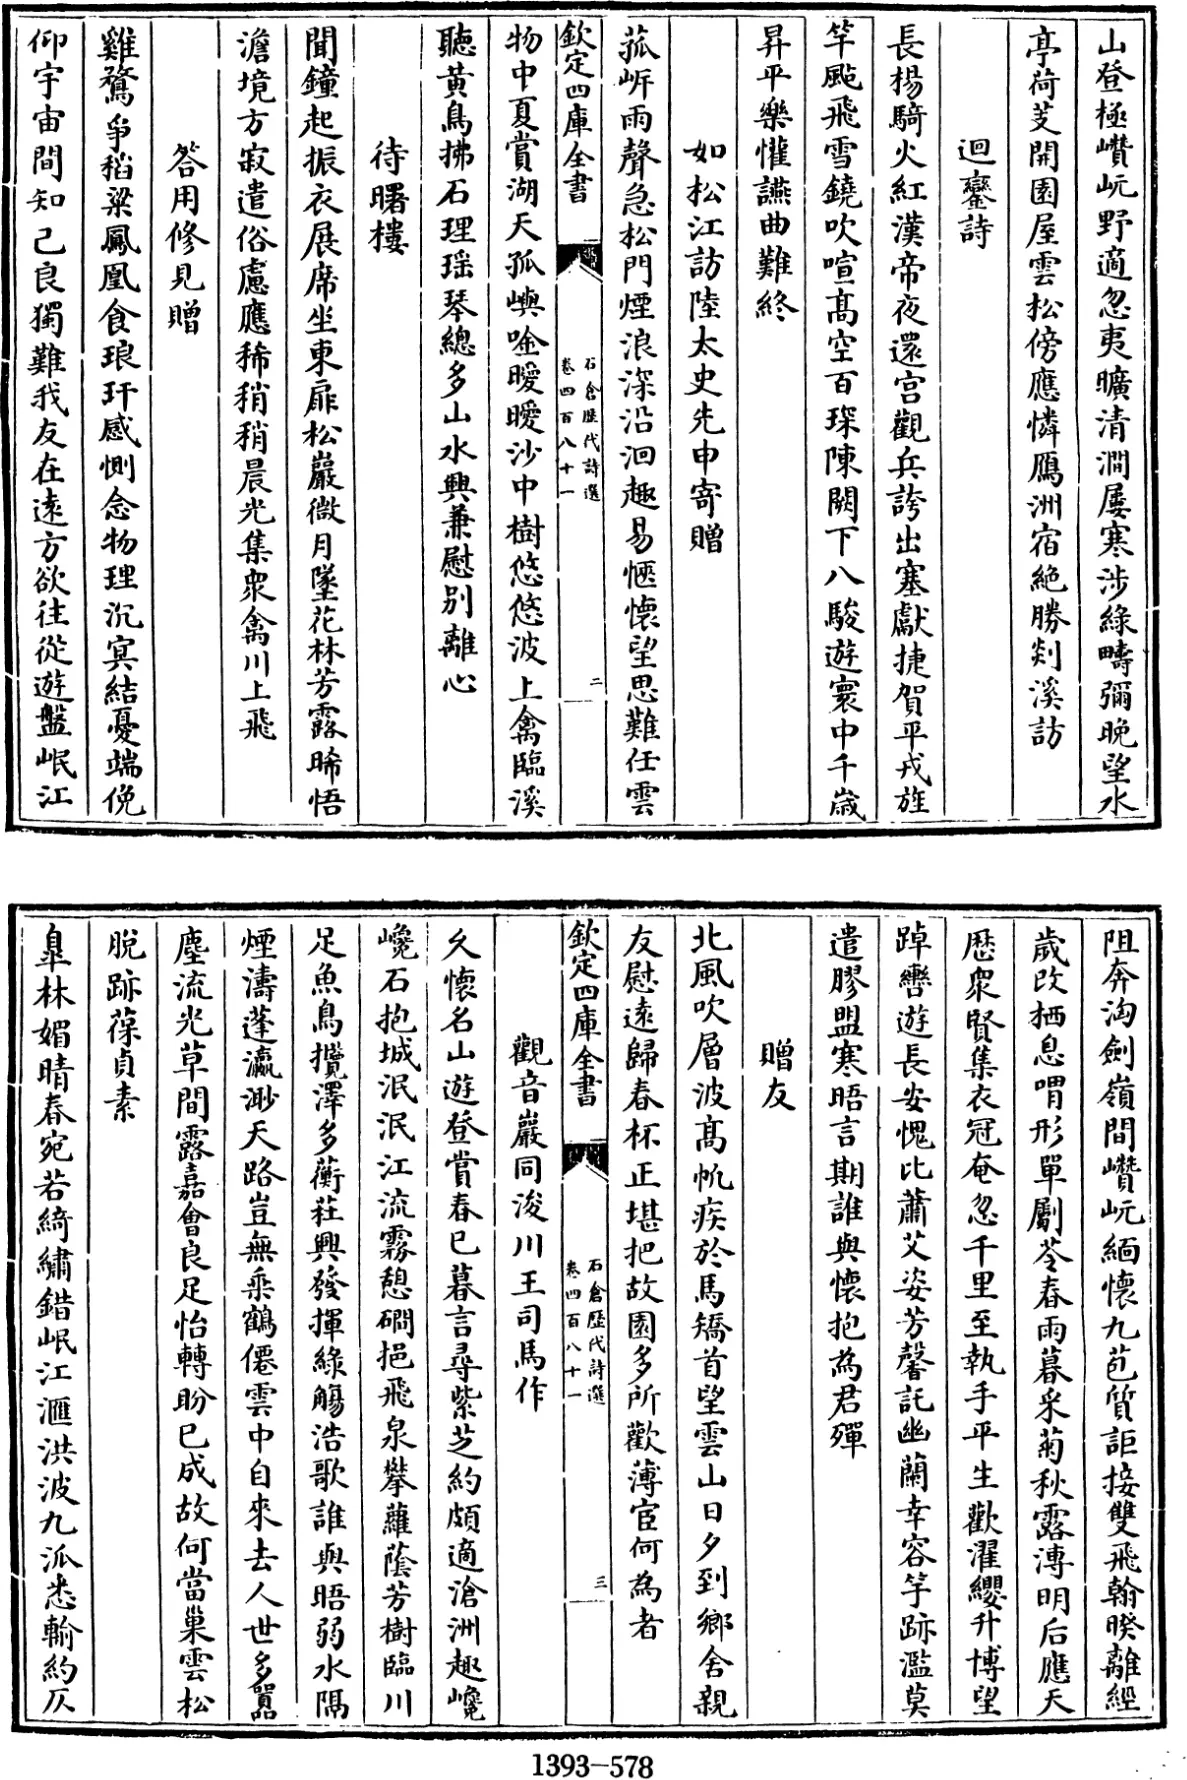 山登極巑岏野適忽夷曠清澗屢寒涉綠疇彌晚望水
亭荷芰開園屋雲松傍應憐鴈洲宿絶勝剡溪訪
迴鑾詩
長楊騎火紅漢帝夜還宫觀兵誇出塞獻捷賀平戎旌
竿颭飛雪鐃吹喧髙空百琛陳闕下八駿遊寰中千歲
昇平樂懽讌曲難終
如松江訪陸太史先申寄贈
菰岸雨聲急松門煙浪深沿洄趣易愜懷望思難任雲
欽定四庫全書
石倉歷代詩選
卷四百八十一
二
物中夏賞湖天孤嶼唫曖曖沙中樹悠悠波上禽臨溪
聽黄鳥拂石理瑶琴總多山水興兼慰别離心
待曙樓
聞鐘起振衣展席坐東扉松巖微月墜花林芳露晞悟
澹境方寂遣俗慮應稀稍稍晨光集衆禽川上飛
答用修見贈
雞鶩爭稻粱鳳凰食琅玕感惻念物理沉冥結憂端俛
仰宇宙間知己良獨難我友在遠方欲往從遊盤岷江
阻奔洶劍嶺間巑岏緬懷九苞質詎接雙飛翰暌離經
歲改栖息喟形單劚苓春雨暮采菊秋露漙明后應天
歷衆賢集衣冠奄忽千里至執手平生歡濯纓升博望
踔轡遊長安愧比蕭艾姿芳馨託幽蘭幸容竽跡濫莫
遣膠盟寒晤言期誰與懷抱為君殫
贈友
北風吹層波髙帆疾於馬矯首望雲山日夕到鄉舍親
友慰遠歸春杯正堪把故園多所歡薄宦何為者
欽定四庫全書
石倉歷代詩選
卷四百八十一
三
觀音巖同浚川王司馬作
久懷名山遊登賞春已暮言尋紫芝約頗適滄洲趣巉
巉石抱城泯泯江流霧憩磵挹飛泉攀蘿蔭芳樹臨川
足魚鳥攬澤多蘅荘興發揮綠觴浩歌誰與晤弱水隔
煙濤蓬瀛渺天路豈無乘鶴僊雲中自來去人世多囂
塵流光草間露嘉會良足怡轉盼已成故何當巢雲松
脱跡葆貞素
臯林媚晴春宛若綺繡錯岷江滙洪波九派悉輸約仄
1393-578